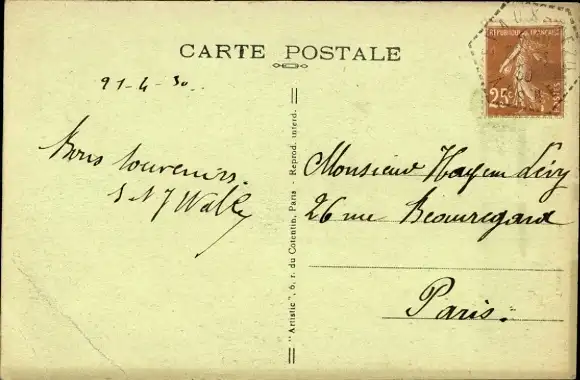 CARTE POSTALE
21-4-30.
Bons souvenirs.
RÉPUBLIQUE FRANÇAISE
25c
POSTES
Monsieur Hayem Lévy
26 rue Beauregard
Paris.
"Artistic", 6, r. du Cotentin, Paris - Reprod. interd.